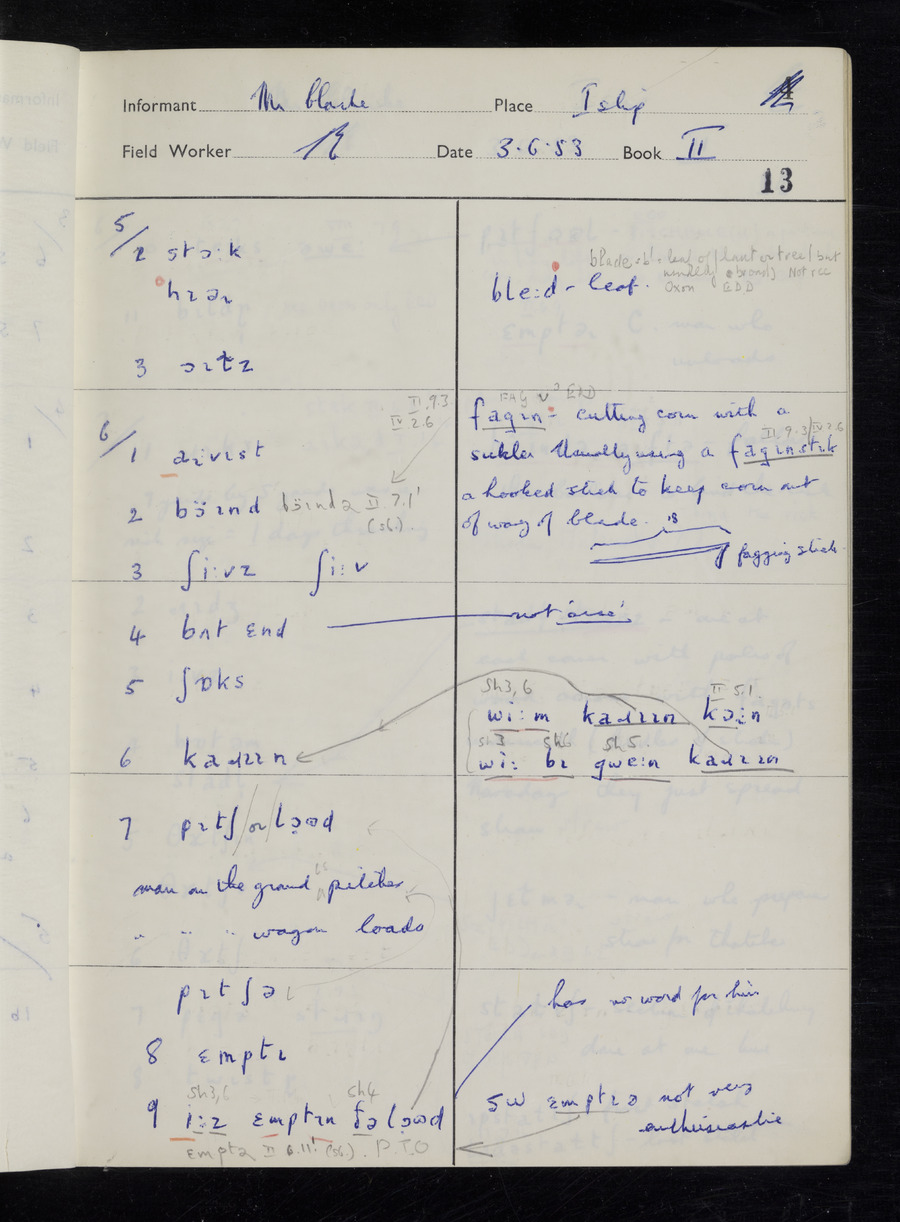 Informant Mr Clarke Place Islip
Field Worker Date 3.6.53 Book II
13
5/
2 stɔːk
hɪəɪ
blade =
leaf of plant or tree / but
broad) Not rec
Oxon EDD
bleːd - leaf.
3 ɔɪts
6/
II.9.3
IV 2.6
FAG v³ EDD
fagɪn - cutting corn with a
1 aɪvɪst
II.9.3/IV 2.6
sickle. Usually using a fagɪnstɪk
a hooked stick to keep corn out
2 bɔ̈ɪnd bɔ̈ɪndə II 7.1' (sh.).
of way of blade.
18
fagging stick.
3 ʃiːvz ʃiːv
4 bʌt ɛnd
not 'arse'
5 ʃɒks
Sh3,6 II 5.1
wiːm kaɹɪɪn kɔːn
sh3 sh6 sh5
wiː bɪ gweːn kaɹɪɪn
6 kaɹɪɪn
7 pɪtʃ/or/lɔəd
man on the ground pitches
" " " wagon loads
pɪtʃə
has no word for him
8 ɛmptɪ
Sh3,6 Sh4
9 iːz ɛmptɪn ðə lɔəd
SW ɛmptɪə not very
enthusiastic
ɛmptə II 6.11' (sh.). P.T.O